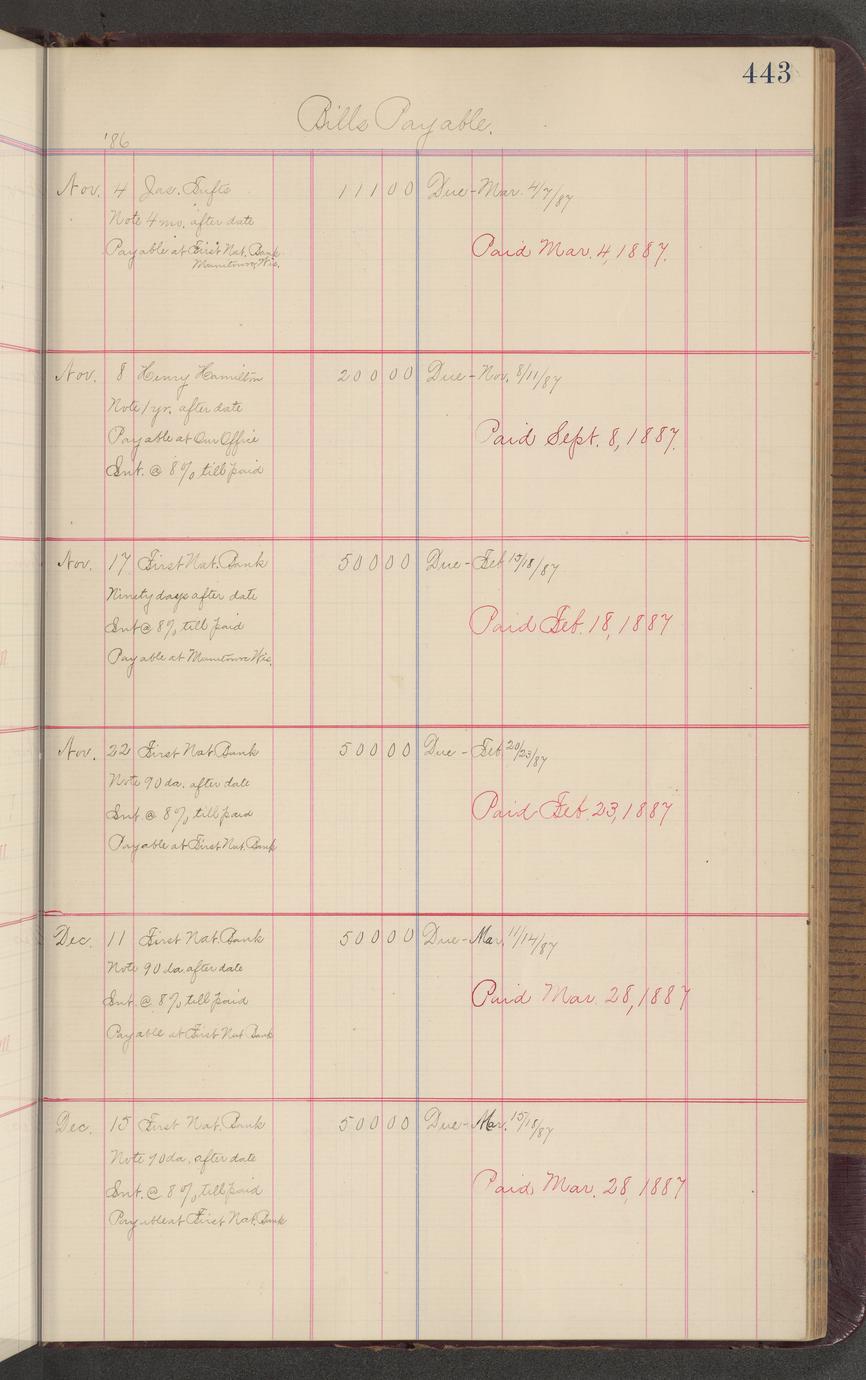 443
Bills Payable.
'86
Nov. 4 Jas. Tufts 111 00 Due - Mar. 4/7/87
Note 4 mo. after date
Payable at First Nat. Bank Paid Mar. 4, 1887.
Manitowoc, Wis.
Nov. 8 Henry Hamilton 200 00 Due - Nov. 8/11/87
Note 1 yr. after date
Payable at Our Office Paid Sept. 8, 1887.
Int. @ 8% till paid
Nov. 17 First Nat. Bank 500 00 Due - Feb 15/18/87
Ninety days after date
Int @ 8% till paid Paid Feb. 18, 1887
Payable at Manitowoc Wis.
Nov. 22 First Nat Bank 500 00 Due - Feb 20/23/87
Note 90 da. after date
Int. @ 8% till paid Paid Feb. 23, 1887
Payable at First Nat. Bank
Dec. 11 First Nat. Bank 500 00 Due - Mar. 11/14/87
Note 90 da. after date
Int. @ 8% till paid Paid Mar. 28, 1887
Payable at First Nat Bank
Dec. 15 First Nat. Bank 500 00 Due - Mar. 15/18/87
Note 90 da. after date
Int. @ 8% till paid Paid Mar. 28, 1887
Payable at First Nat. Bank